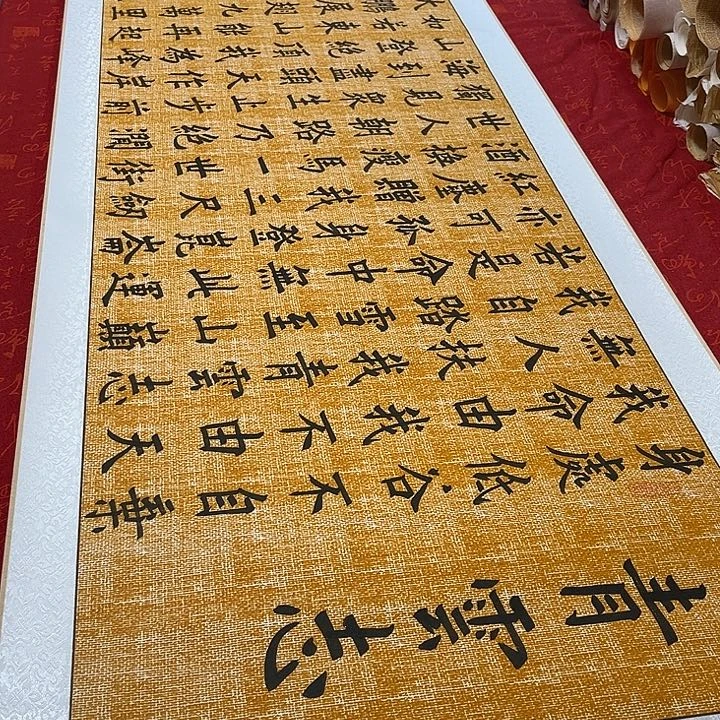 青雲志
身處低谷不自棄
我命由我不由天
無人扶我青雲志
我自踏雪至山巔
若是命中無此運
亦可孤身登崑崙
紅塵贈我三尺
酒槍渡馬一世街
世人朝路乃絕澗
獨見衆生止步前
海到盡頭天作岸
山登絕頂我為峰
如若東山能再起
大鵬展翅九萬里